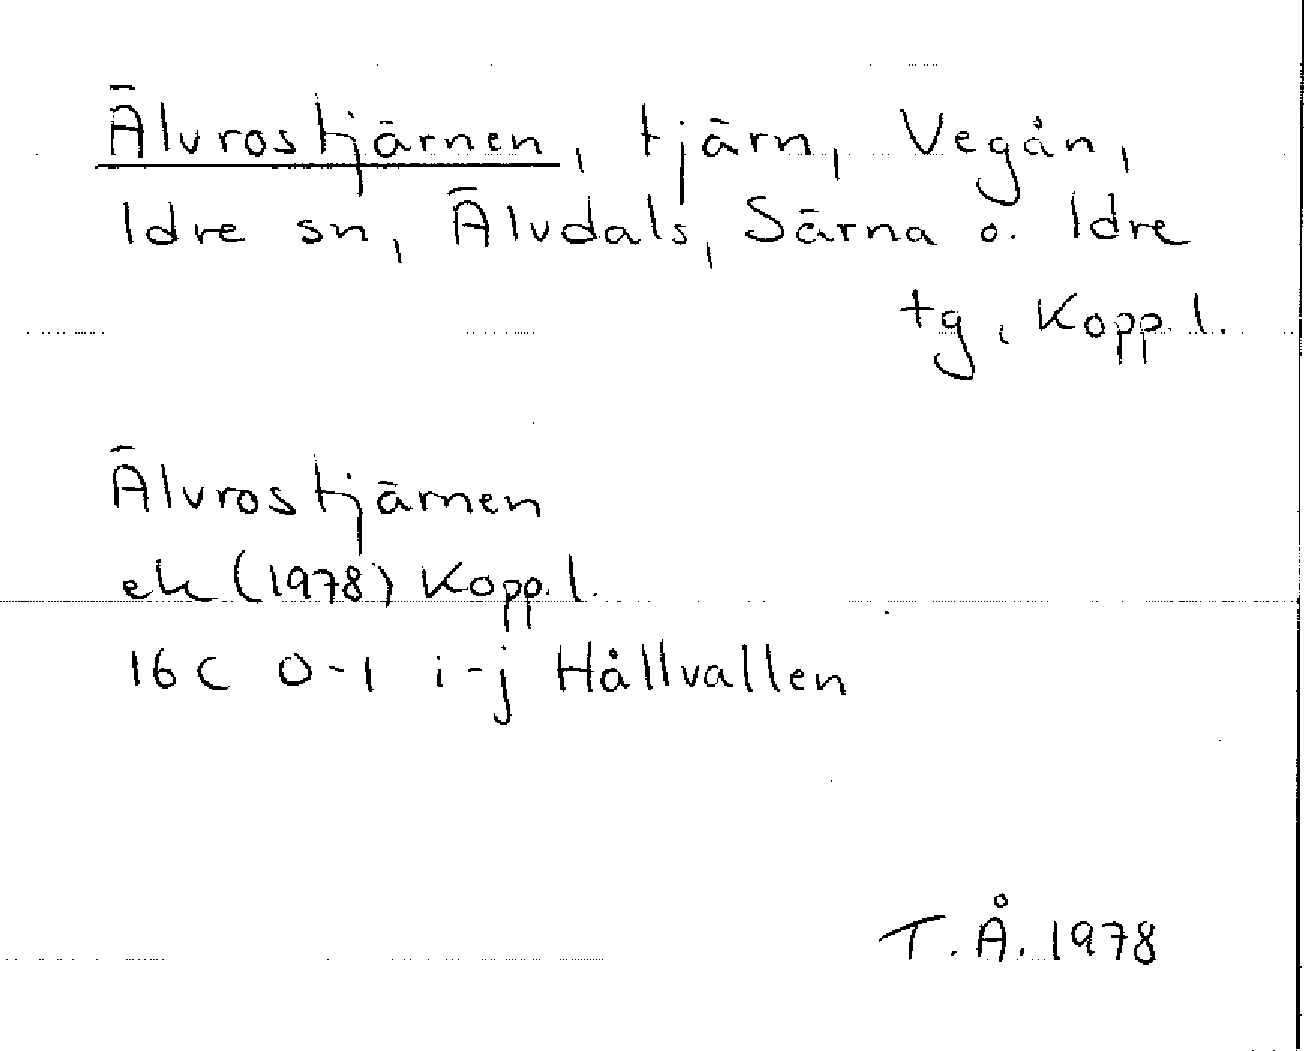 Älvrostjärnen, tjärn, Vegån,
Idre sn, Älvdals, Särna o. Idre
tg, Kopp. l.
Älvrostjärnen
ek (1978) Kopp. l.
16C 0-1 i-j Hållvallen
T. Å. 1978